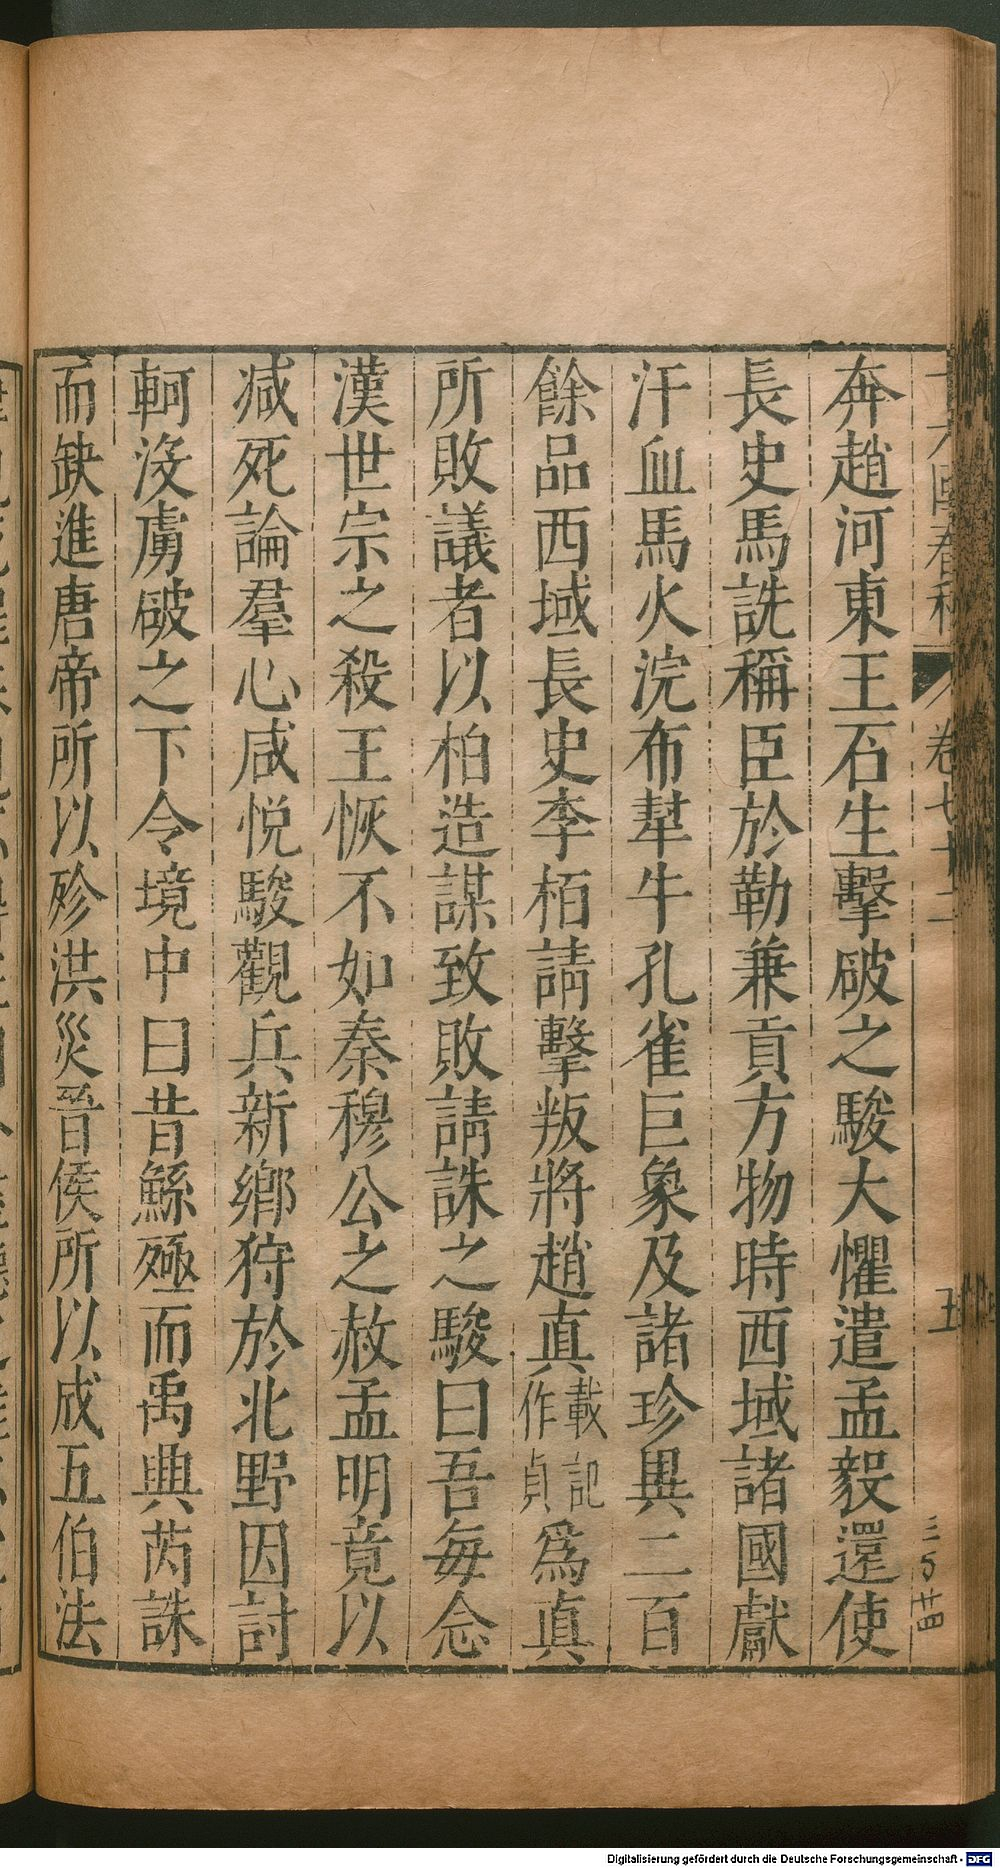 奔趙河東王石生擊破之駿大懼遣孟毅還使
長史馬詵稱臣於勒兼貢方物時西域諸國獻
汗血馬火浣布犎牛孔雀巨象及諸珍異二百
餘品西域長史李栢請擊叛將趙真載記作貞爲真
所敗議者以柏造謀致敗請誅之駿曰吾每念
漢世宗之殺王恢不如秦穆公之赦孟明竟以
减死論羣心咸悅駿觀兵新鄉狩於北野因討
軻没虜破之下令境中曰昔鯀殛而禹興芮誅
而缺進唐帝所以殄洪災晉侯所以成五伯法
十六國春秋 卷七十二 五
三百廿四
Digitalisierung gefördert durch die Deutsche Forschungsgemeinschaft - DFG